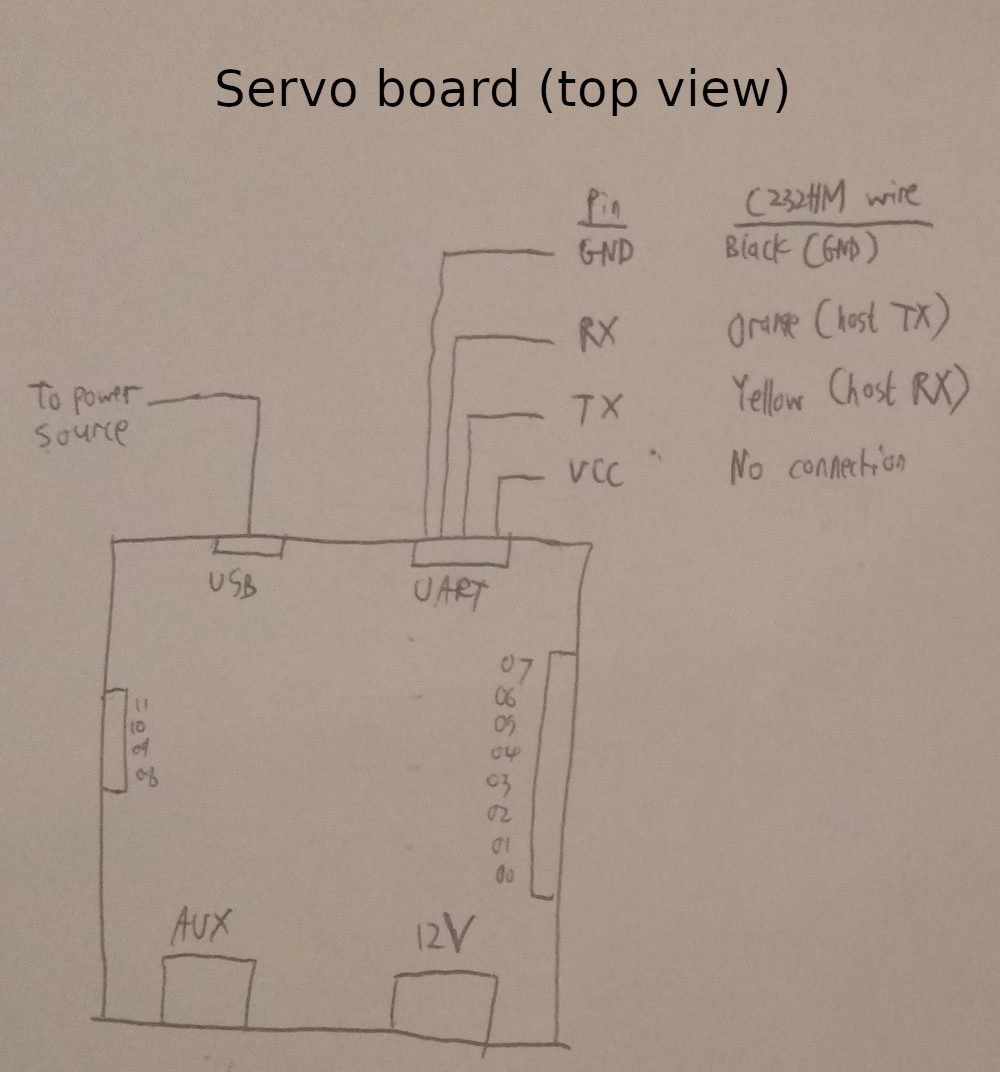 Servo board (top view)
Pin C232HM wire
GND Black (GND)
RX Orange (host TX)
TX Yellow (host RX)
VCC No connection
To power
source
USB
UART
07
06
05
04
03
02
01
00
11
10
09
08
AUX
12V